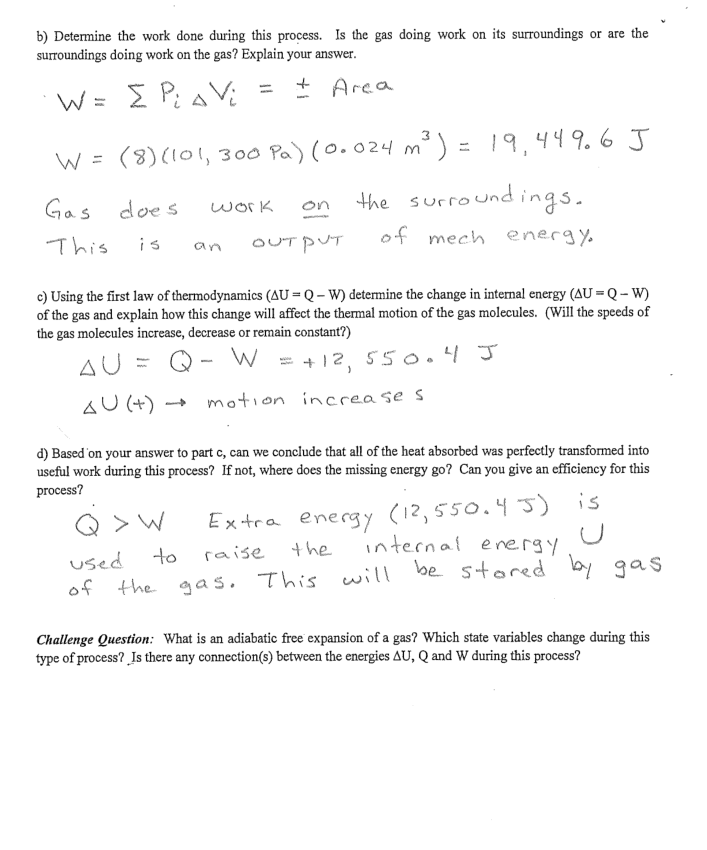 b) Determine the work done during this process. Is the gas doing work on its surroundings or are the
surroundings doing work on the gas? Explain your answer.
W = Σ Pi ΔVi = ± Area
W = (8)(101,300 Pa)(0.024 m³) = 19,449.6 J
Gas does work on the surroundings.
This is an OUTPUT of mech energy.
c) Using the first law of thermodynamics (ΔU = Q – W) determine the change in internal energy (ΔU = Q – W)
of the gas and explain how this change will affect the thermal motion of the gas molecules. (Will the speeds of
the gas molecules increase, decrease or remain constant?)
ΔU = Q - W = +12,550.4 J
ΔU (+) → motion increases
d) Based on your answer to part c, can we conclude that all of the heat absorbed was perfectly transformed into
useful work during this process? If not, where does the missing energy go? Can you give an efficiency for this
process?
Q > W Extra energy (12,550.4 J) is
used to raise the internal energy U
of the gas. This will be stored by gas
Challenge Question: What is an adiabatic free expansion of a gas? Which state variables change during this
type of process? Is there any connection(s) between the energies ΔU, Q and W during this process?